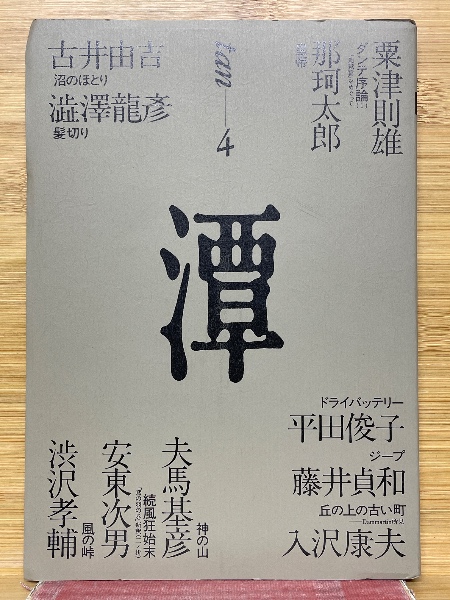 古井由吉
沼のほとり
澁澤龍彥
髪切り
tan—4
粟津則雄
ダンテ序論
那珂太郎
潭
ドライバッテリー
平田俊子
ジープ
藤井貞和
丘の上の古い町
入沢康夫
夫馬基彦
神の山
安東次男
続風狂始末
渋沢孝輔
風の峠